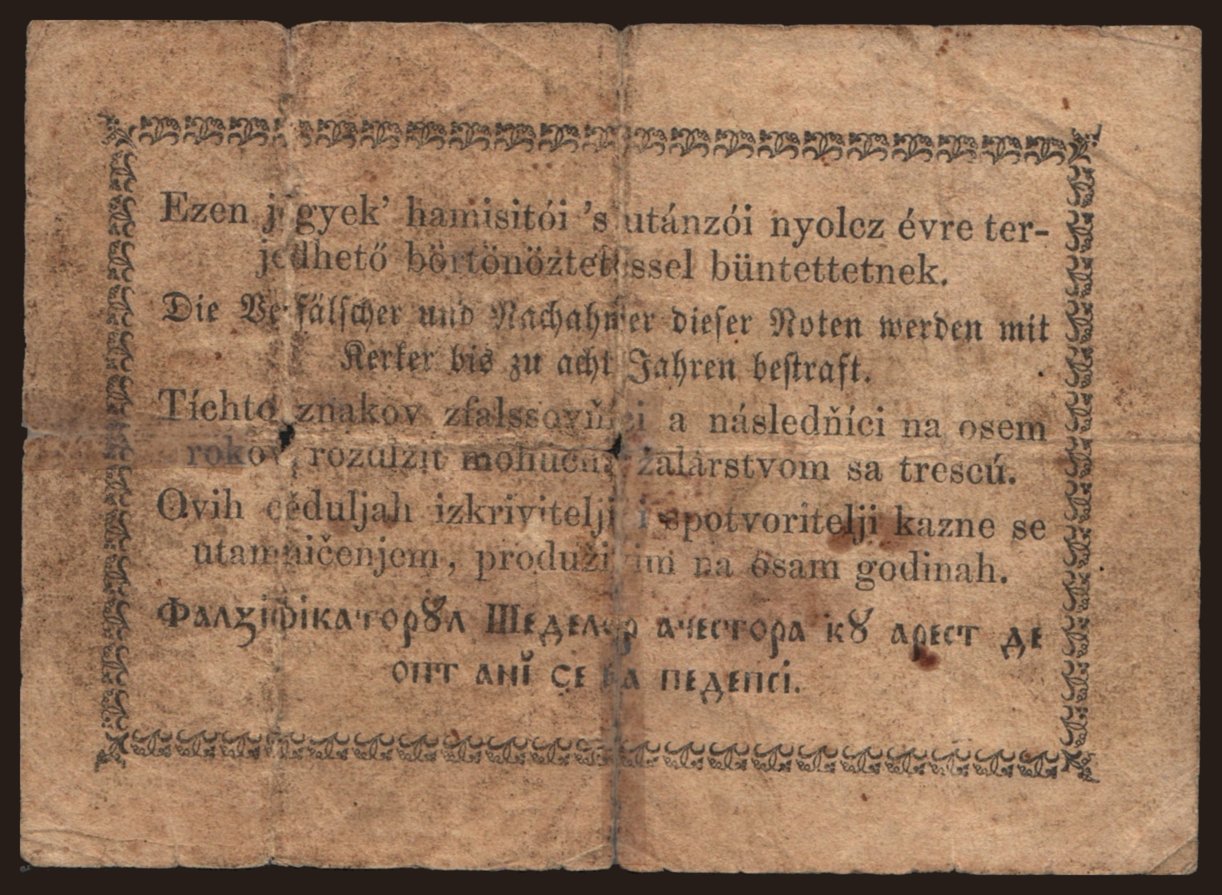 Ezen jegyek’ hamisitói ’s utánzói nyolcz évre ter-
jedhető börtönöztetéssel büntettetnek.
Die Verfälscher und Nachahmer dieser Noten werden mit
Kerker bis zu acht Jahren bestraft.
Tíchto znakov zfalssovňíci a následňíci na osem
rokov, rozdlžit mohúcím žalárstvom sa trescú.
Ovih ceduljah izkrivitelji i spotvoritelji kazne se
utamničenjem, produživim na osam godinah.
Фалꙁіфікаторꙋл Шеделѡр ачестора кꙋ арест де
опт анĭ се ва педепсі.